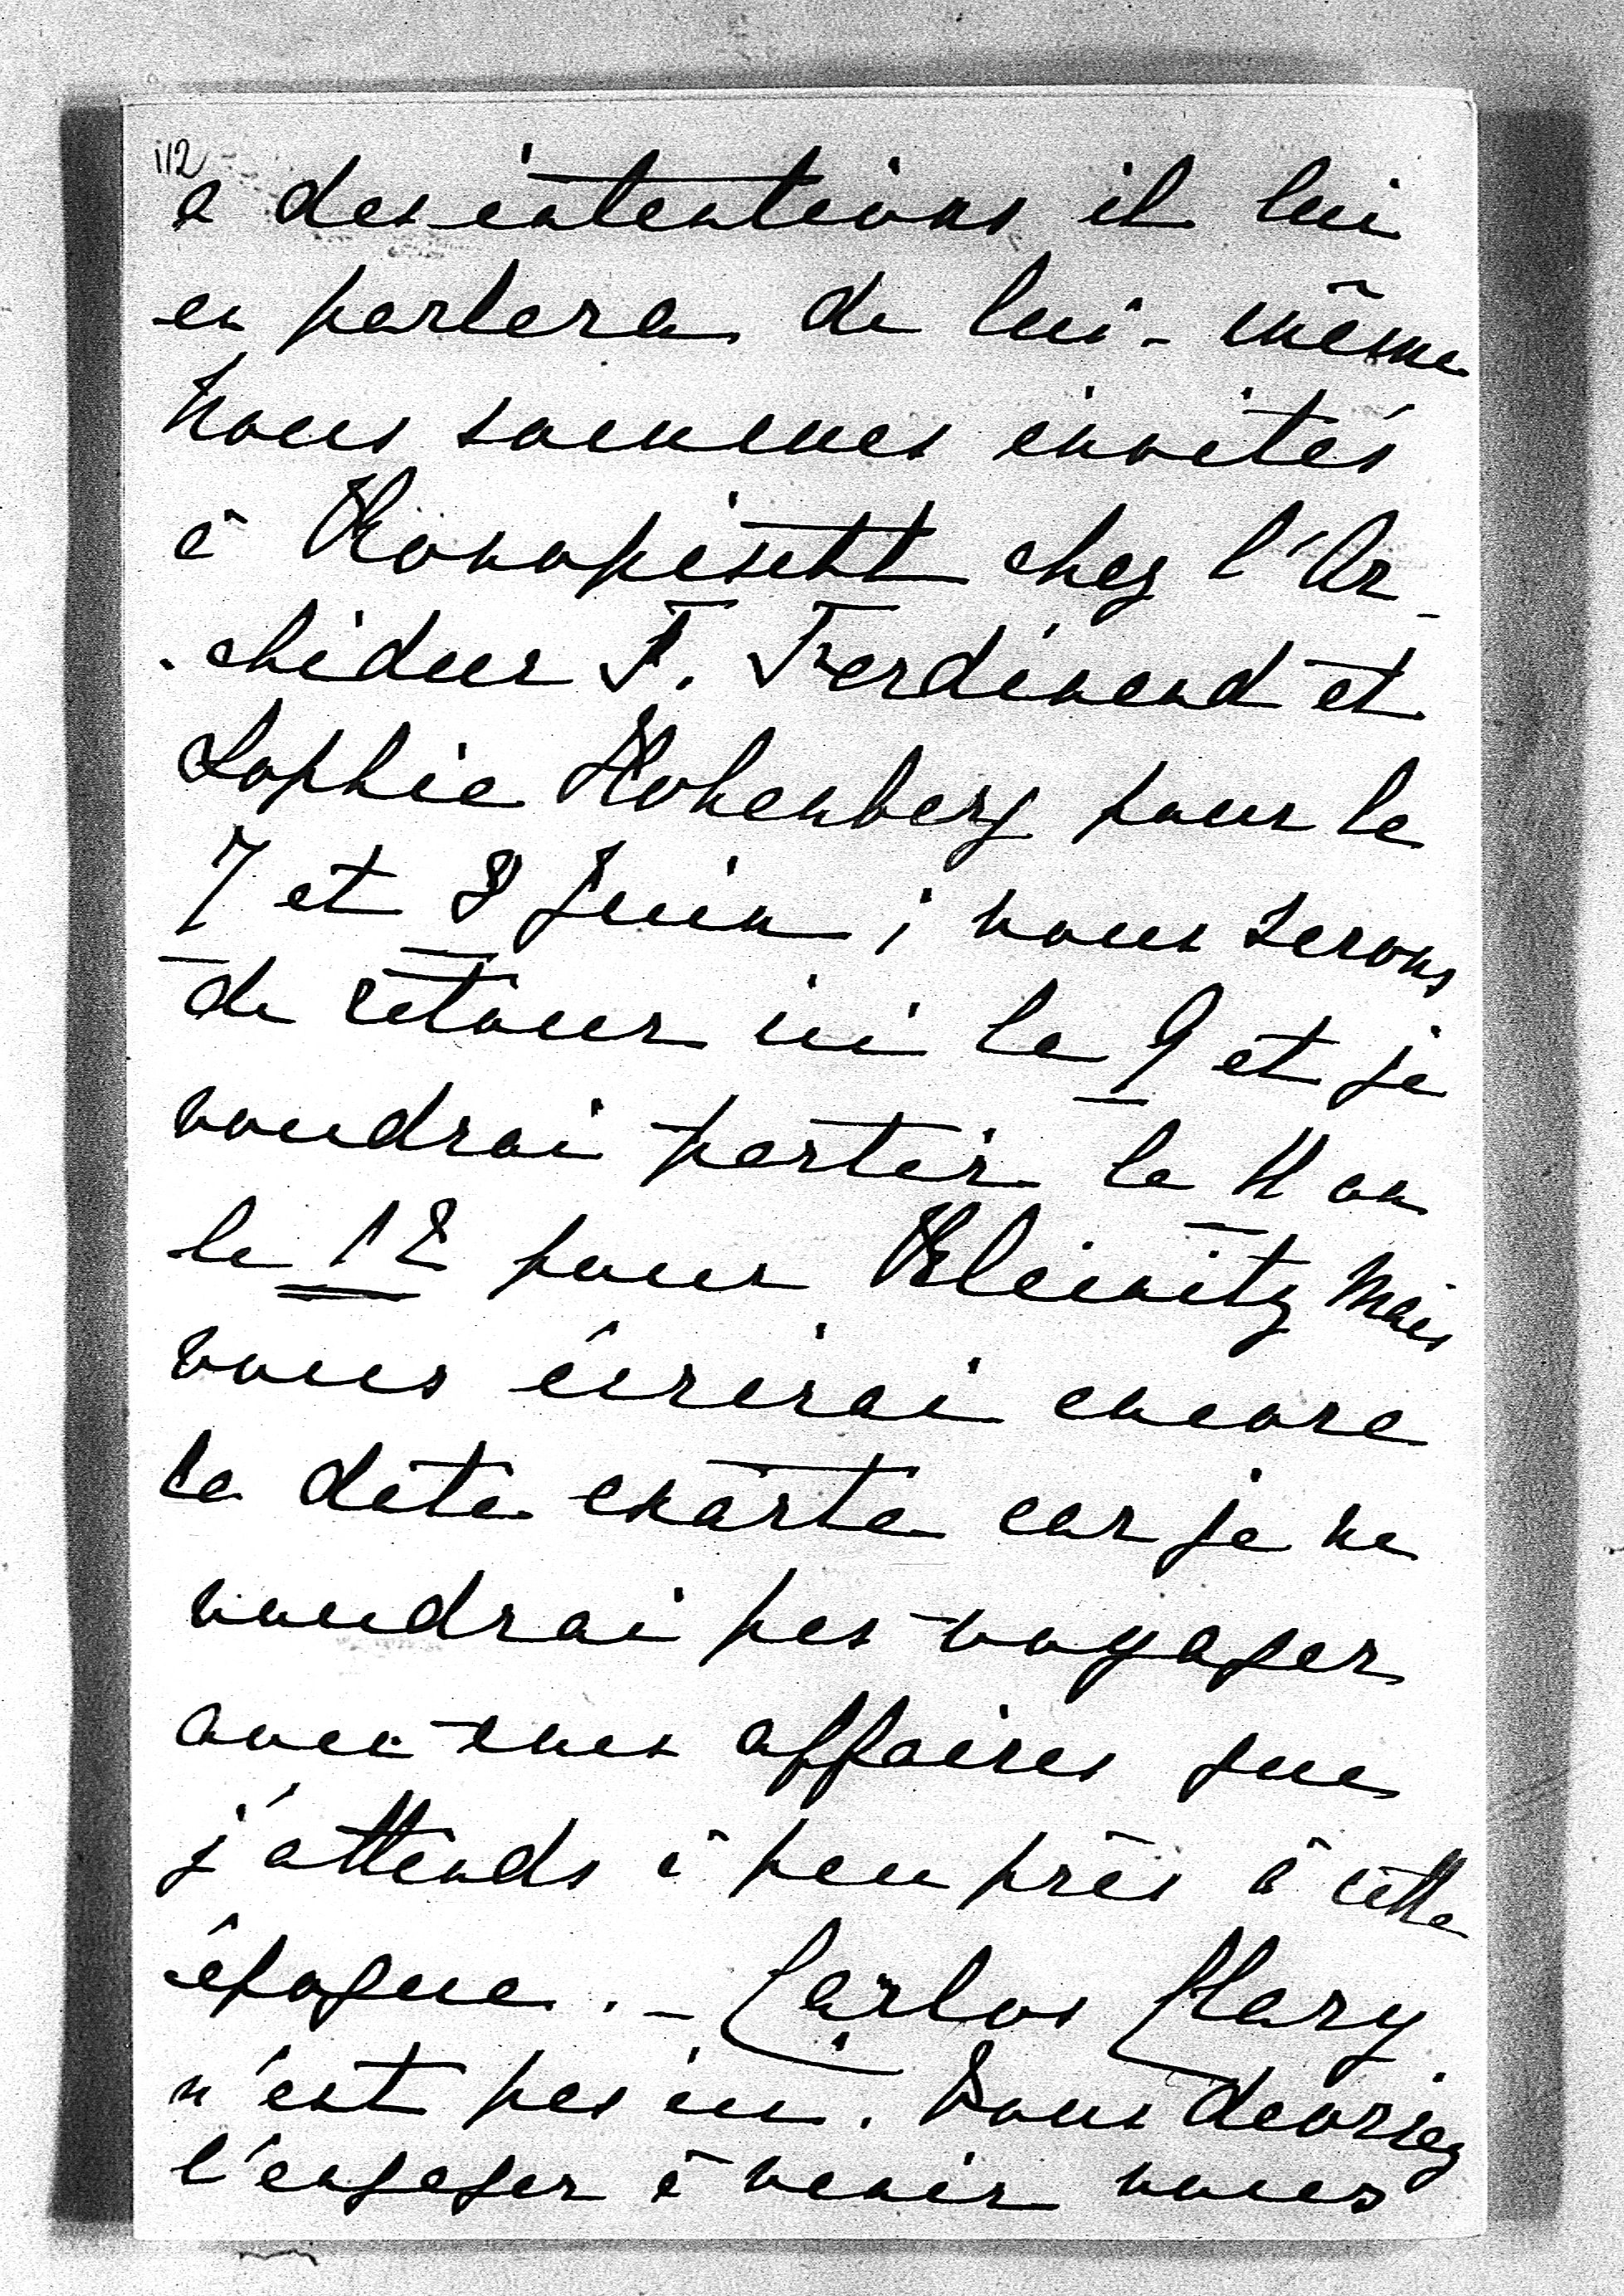 112
a des intentions il lui
en parlera de lui-même
Nous sommes invités
à Konopischt chez l'Ar-
chiduc F. Ferdinand et
Sophie Hohenberg pour le
7 et 8 Juin ; nous serons
de retour ici le 9 et je
voudrai partir le 11 ou
le 12 pour Kleinitz Mais
vous écrirai encore
la date exacte car je ne
voudrai pas voyager
avec mes affaires que
j'attends à peu près à cette
époque. - Carlos Clary
n'est pas ici. Vous devriez
l'engager à venir vous